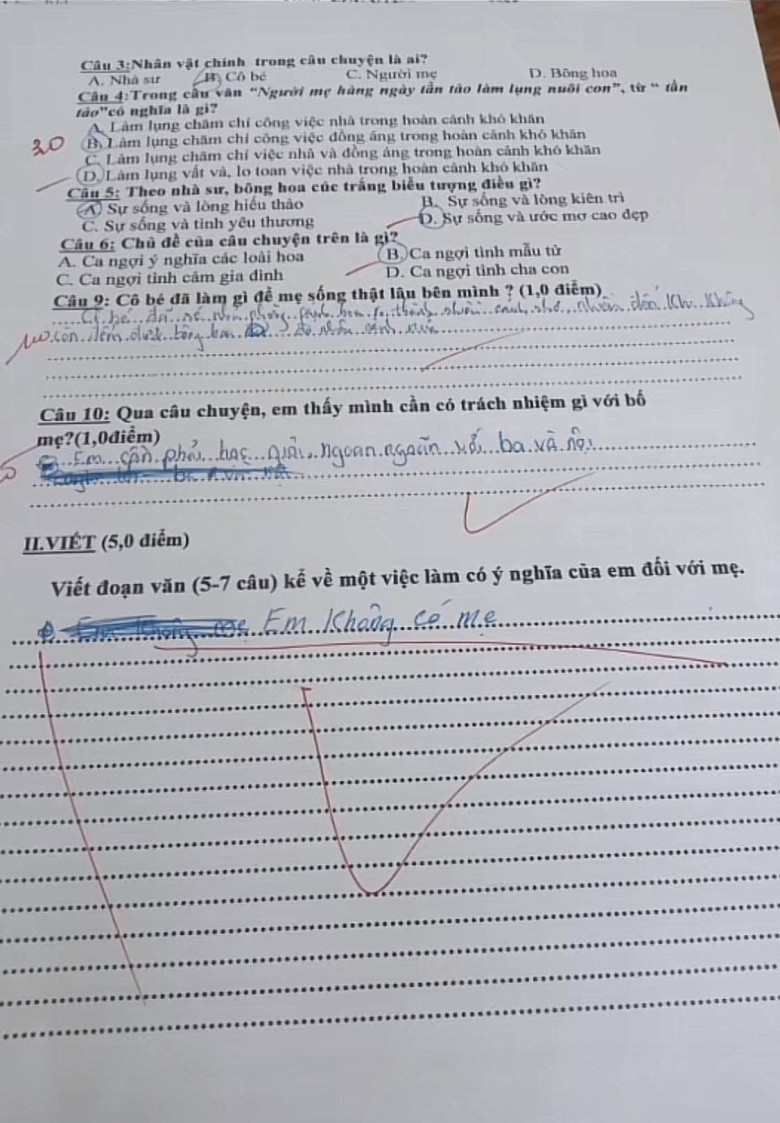 Câu 3:Nhân vật chính trong câu chuyện là ai?
A. Nhà sư B. Cô bé C. Người mẹ D. Bông hoa
Câu 4:Trong câu văn “Người mẹ hàng ngày tần tảo làm lụng nuôi con”, từ “ tần
tảo”có nghĩa là gì?
A. Làm lụng chăm chỉ công việc nhà trong hoàn cảnh khó khăn
30
B. Làm lụng chăm chỉ công việc đồng áng trong hoàn cảnh khó khăn
C. Làm lụng chăm chỉ việc nhà và đồng áng trong hoàn cảnh khó khăn
D. Làm lụng vất vả, lo toan việc nhà trong hoàn cảnh khó khăn
Câu 5: Theo nhà sư, bông hoa cúc trắng biểu tượng điều gì?
A. Sự sống và lòng hiếu thảo B. Sự sống và lòng kiên trì
C. Sự sống và tình yêu thương D. Sự sống và ước mơ cao đẹp
Câu 6: Chủ đề của câu chuyện trên là gì?
A. Ca ngợi ý nghĩa các loài hoa B. Ca ngợi tình mẫu tử
C. Ca ngợi tình cảm gia đình D. Ca ngợi tình cha con
Câu 9: Cô bé đã làm gì để mẹ sống thật lâu bên mình ? (1,0 điểm)
Cô bé đã xé nhỏ thành nhiều cánh nhỏ nhiều đến khi không
còn đếm được bông hoa
Câu 10: Qua câu chuyện, em thấy mình cần có trách nhiệm gì với bố
mẹ?(1,0điểm)
Em cần phải học giỏi ngoan ngoãn với ba và nội
II.VIẾT (5,0 điểm)
Viết đoạn văn (5-7 câu) kể về một việc làm có ý nghĩa của em đối với mẹ.
Em không có mẹ